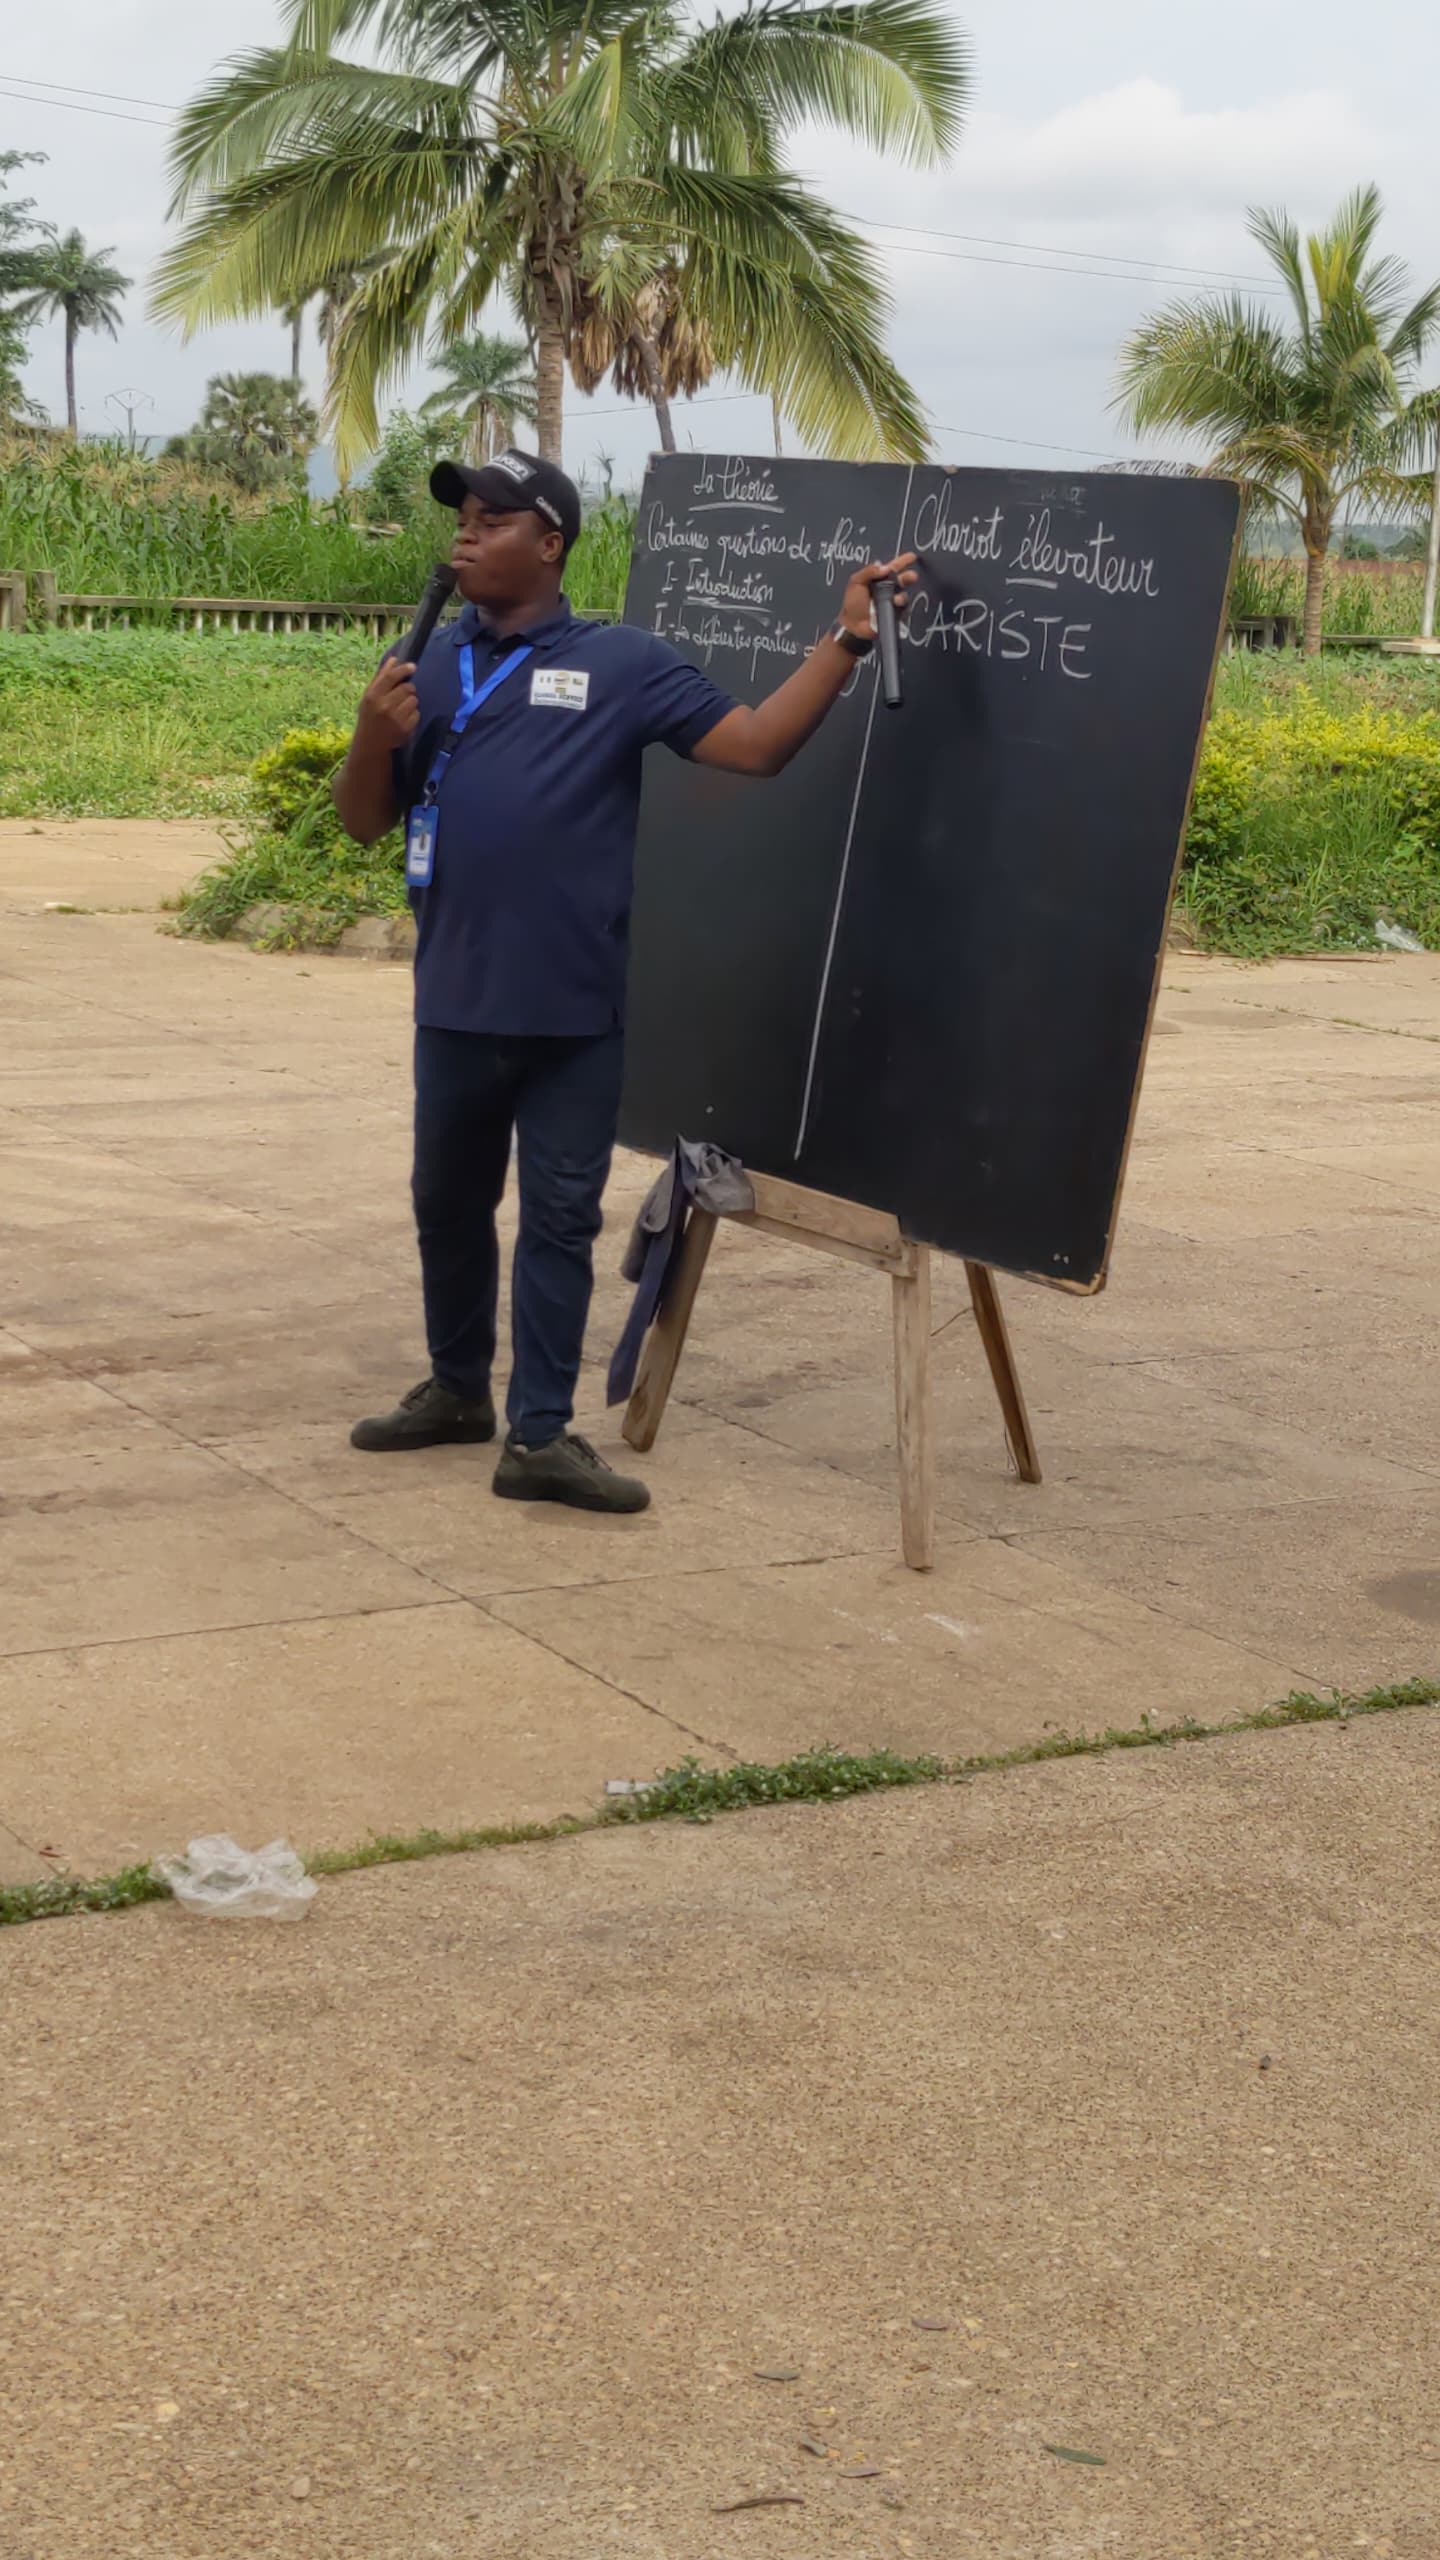 La théorie
Certaines questions de réflexion
I- Introduction
II- Les différentes parties
Chariot élevateur
CARISTE